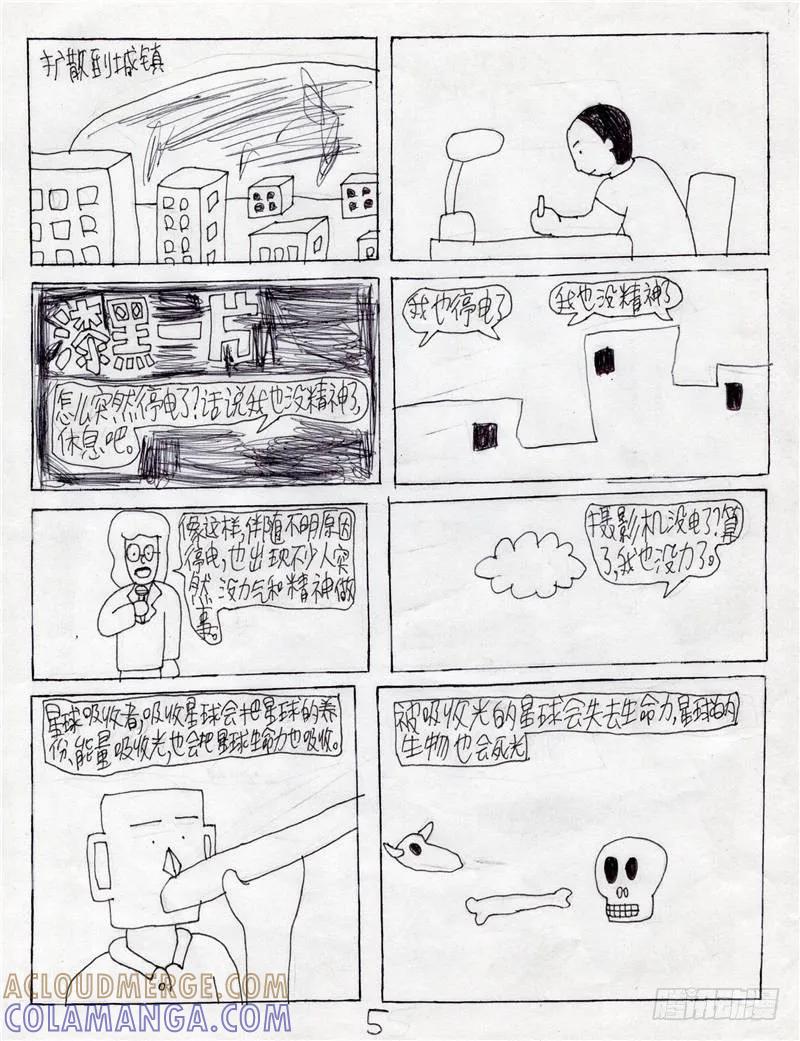 扩散到城镇
漆黑一片
怎么突然停电了?话说我也没精神了,
休息吧。
我也停电了
我也没精神了
像这样,伴随不明原因
停电,也出现不少人突
然没力气和精神做
事。
摄影机没电了?算
了,我也没力了。
星球吸收者,吸收星球会把星球的养
份、能量吸收光,也会把星球生命力也吸收。
被吸收光的星球会失去生命力,星球的
生物也会死光.
ACLOUDMERGE.COM
COLAMANGA.COM
腾讯动漫
5